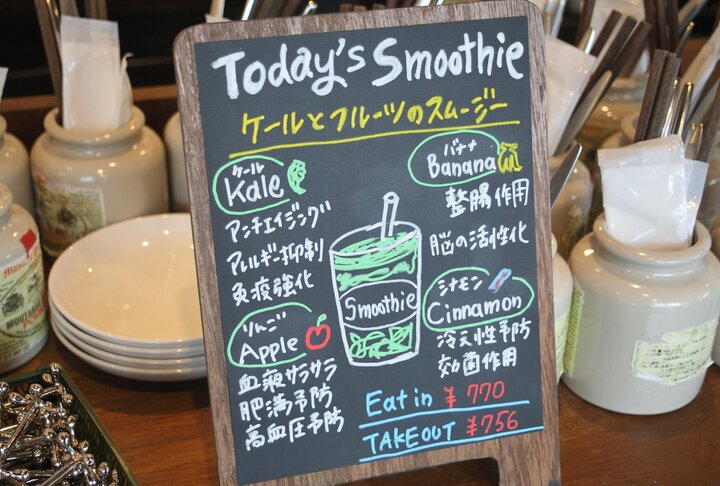 Today's Smoothie
ケールとフルーツのスムージー
ケール
Kale
アンチエイジング
アレルギー抑制
免疫強化
りんご
Apple
血液サラサラ
肥満予防
高血圧予防
Smoothie
バナナ
Banana
整腸作用
脳の活性化
シナモン
Cinnamon
冷え性予防
効菌作用
Eat in ¥770
TAKEOUT ¥756